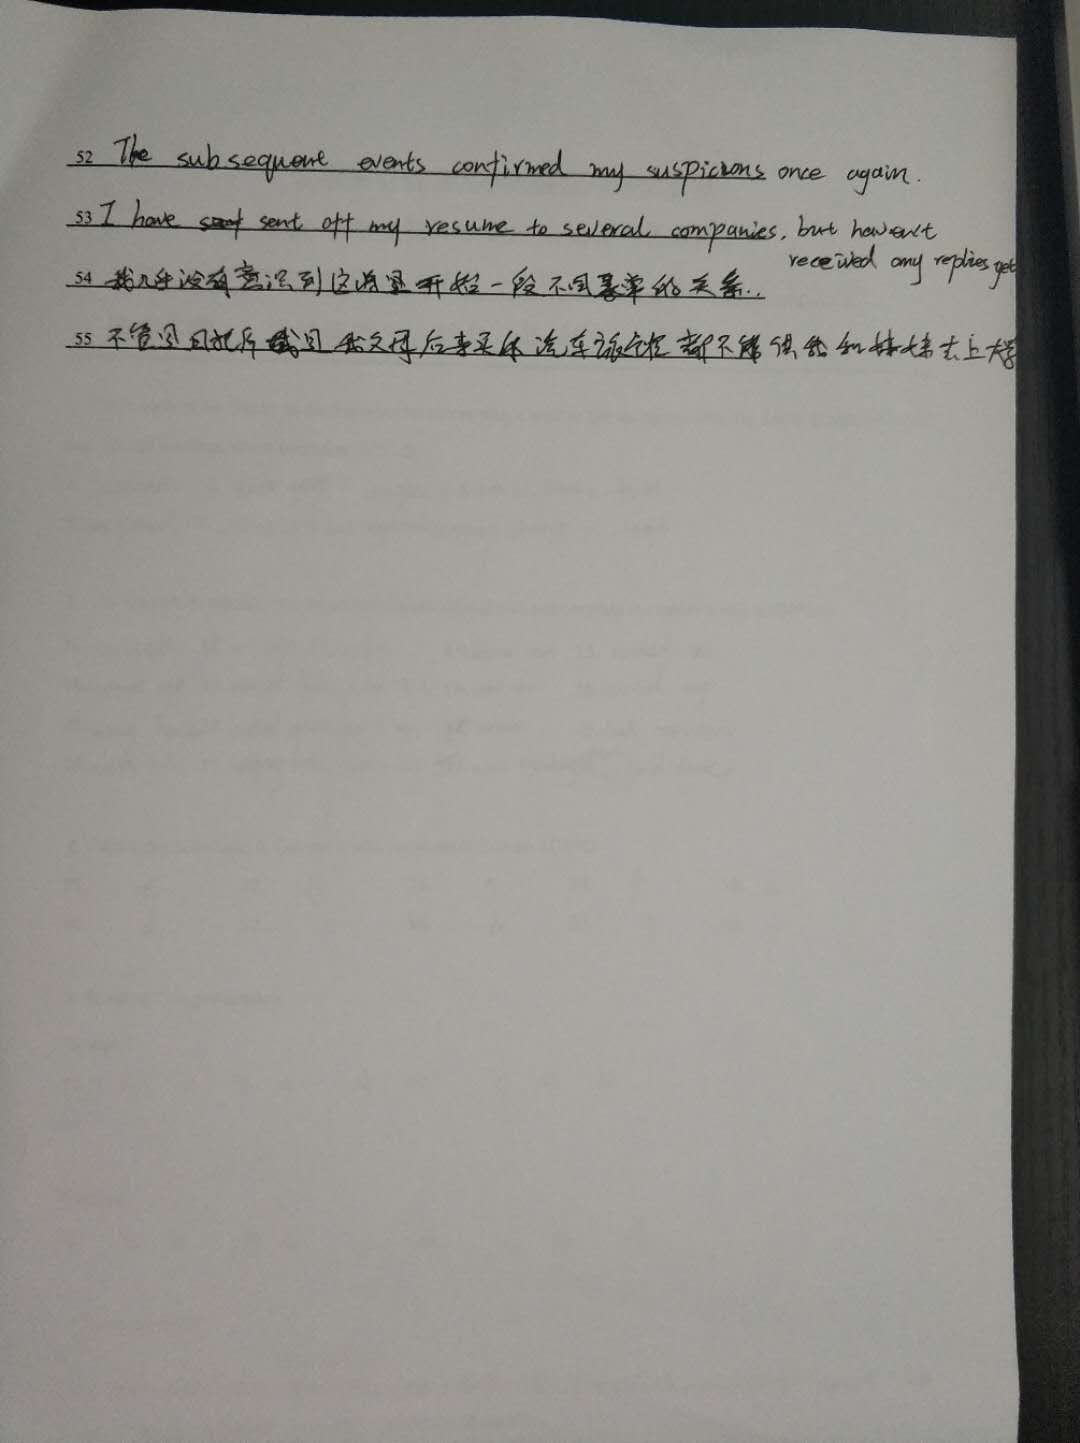 52 The subsequent events confirmed my suspicions once again.
53 I have sent off my resume to several companies, but haven't
received any replies yet
54 我几乎没有意识到这将是开始一段不同寻常的关系..
55 不管是 父母后来买 汽车旅馆都不能供我和妹妹去上大学